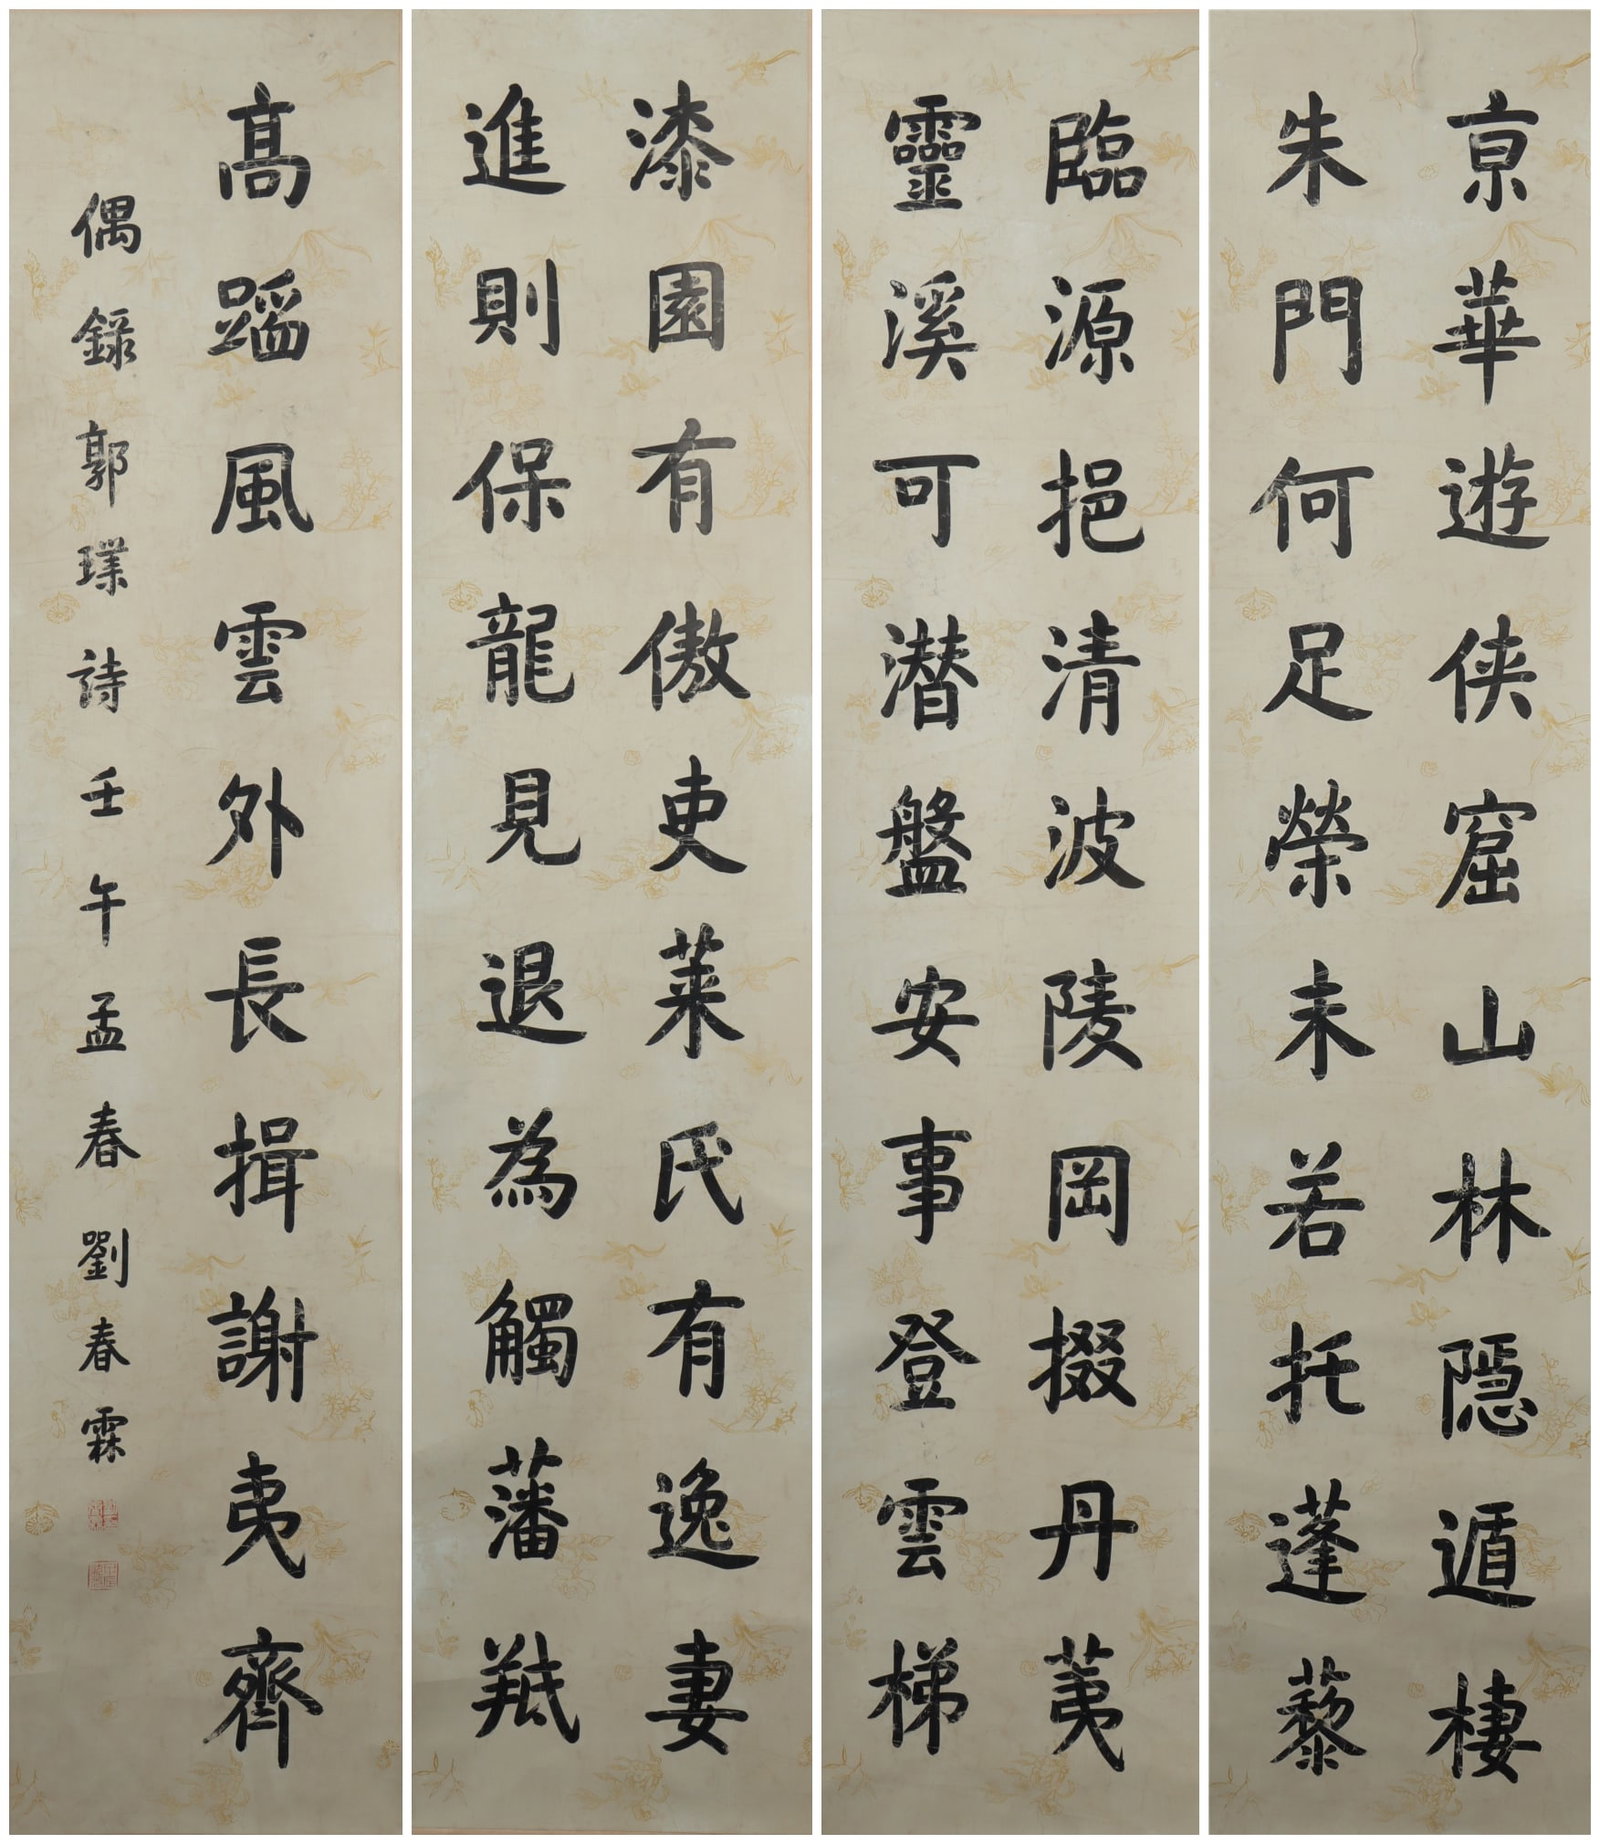 京華遊俠窟山林隱遯棲
朱門何足榮未若托蓬藜
臨源挹清波陵岡掇丹荑
靈溪可潜盤安事登雲梯
漆園有傲吏萊氏有逸妻
進則保龍見退為觸藩羝
高蹈風雲外長揖謝夷齊
偶錄郭璞詩壬午孟春劉春霖